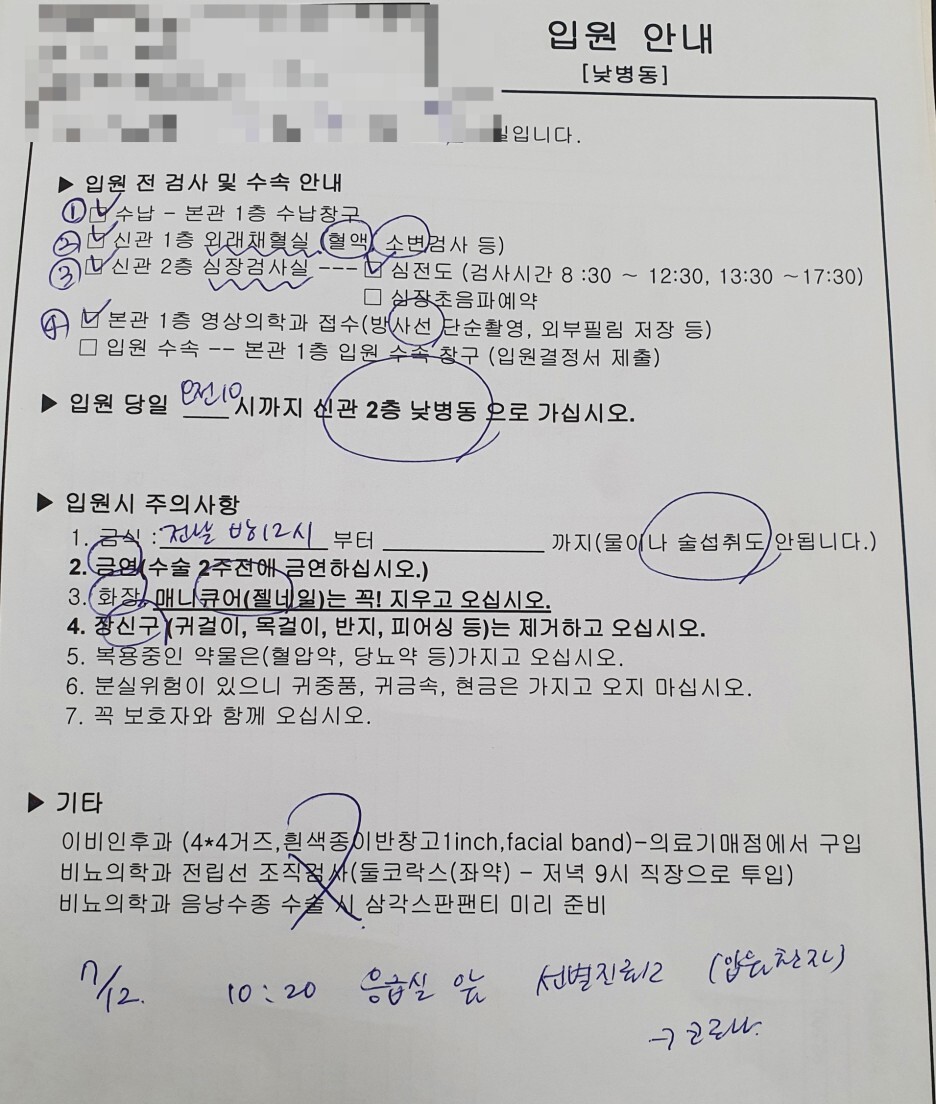 입원 안내
[낮병동]
일입니다.
▶ 입원 전 검사 및 수속 안내
① ☑ 수납 - 본관 1층 수납창구
② ☑ 신관 1층 외래채혈실 (혈액, 소변검사 등)
③ ☑ 신관 2층 심장검사실 --- ☑ 심전도 (검사시간 8 :30 ~ 12:30, 13:30 ~17:30)
☐ 심장초음파예약
④ ☑ 본관 1층 영상의학과 접수(방사선 단순촬영, 외부필림 저장 등)
☐ 입원 수속 -- 본관 1층 입원 수속 창구 (입원결정서 제출)
▶ 입원 당일 오전10 시까지 신관 2층 낮병동 으로 가십시오.
▶ 입원시 주의사항
1. 금식 : 전날 밤12시 부터 ____________ 까지(물이나 술섭취도 안됩니다.)
2. 금연(수술 2주전에 금연하십시오.)
3. 화장, 매니큐어(젤네일)는 꼭! 지우고 오십시오.
4. 장신구 (귀걸이, 목걸이, 반지, 피어싱 등)는 제거하고 오십시오.
5. 복용중인 약물은(혈압약, 당뇨약 등)가지고 오십시오.
6. 분실위험이 있으니 귀중품, 귀금속, 현금은 가지고 오지 마십시오.
7. 꼭 보호자와 함께 오십시오.
▶ 기타
이비인후과 (4*4거즈,흰색종이반창고1inch,facial band)-의료기매점에서 구입
비뇨의학과 전립선 조직검사(둘코락스(좌약) - 저녁 9시 직장으로 투입)
비뇨의학과 음낭수종 수술 시 삼각스판팬티 미리 준비
7/12. 10:20 응급실 앞 선별진료소 (입원환자)
→ 코로나.